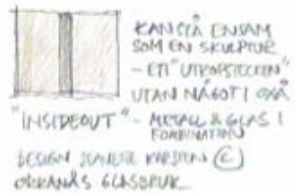 KAN STÅ ENSAM
SOM EN SKULPTUR
- ETT "UTROPSTECKEN"
UTAN NÅGOT I OXÅ
"INSIDEOUT" - METALL & GLAS I
KOMBINATION
DESIGN JEANETTE KARSTEN ©
GLASBRUK